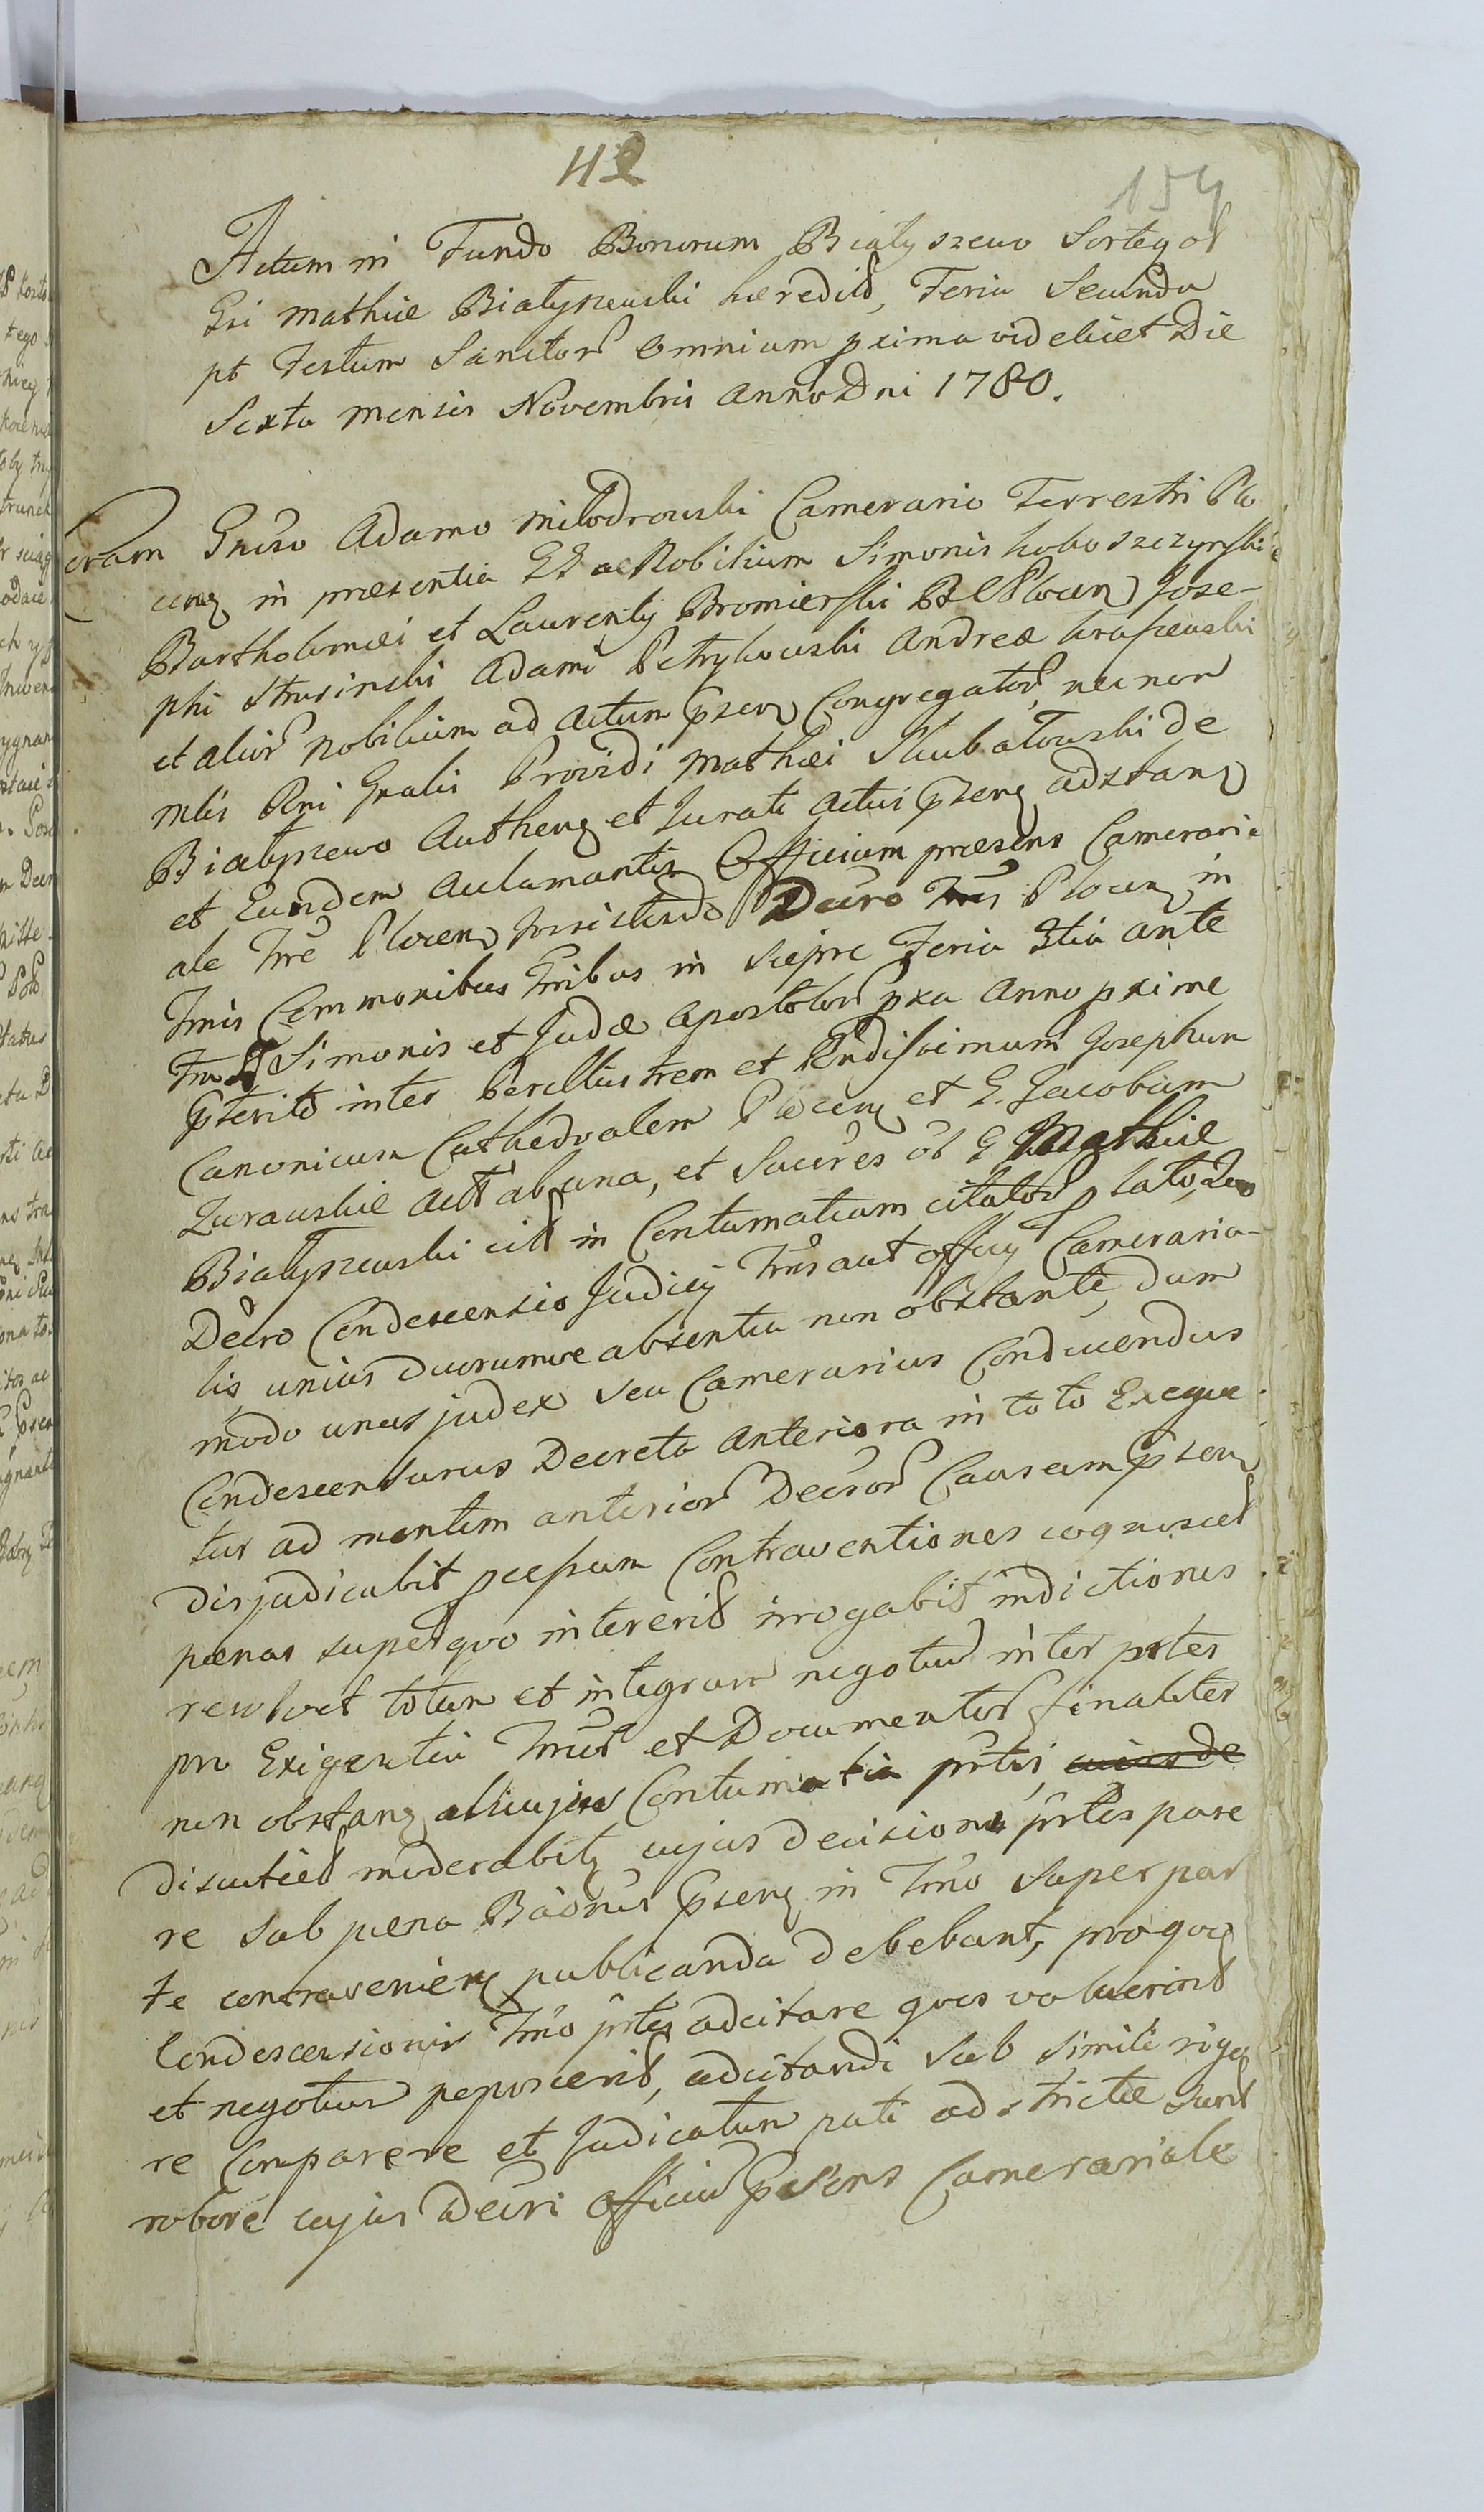 42
154
Actum in Fundo Bonorum Białyszewo Sortis G
Mathiæ Białyszewski hæredit, Feria Secunda
pt Festum Sanctor Omnium prima videlicet Die
Sexta Mensis Novembris Anno Dni 1780.
Coram Gnroso Adamo Miłodrowski Camerario Terrestri Plo
cen in præsentia GG ac Nobilium Simonis Koboszczynski
Bartholomæi et Laurentij Bromierski Plocen Jose-
phi Strusinski Adami Petrykowski Andreæ Krajewski
et alior Nobilium ad Actum psen Congregator, nec non
Mlis Rni Gnalis Providi Mathæi Skubatowski de
Białyszewo Authen et Jurati Actui psen adstan
et Eundem Aclamantis Officium præsens Camerari
ale Tre Plocen Insistendo Decro Tris Plocen in
Tmis Communibus Tribus in Sierpc Feria 3tia ante
Fm SS Simonis et Judæ Apostolor pxa Anno pxime
pterito inter Perillustrem et Rndissimum Josephum
Canonicum Cathedralem Plocen et G. Jacobum
Zurawskie Act ab una, et Succres ol G Mathiæ
Białyszewski cit in Contumatiam citator plato, Quo
Decro Condescensio Judicij Tris aut officij Cameraria-
lis, unius duorumve absentia non obstante, dum
modo unus judex seu Camerarius Conducendus
Condescensurus Decreta Anteriora in toto Exeque
tur ad mentem anterior Decror Causam psen
disjudicabit Contraventiones cognoscet
pænas super quo intererit irrogabit indictiones
resolvet totum et integrum negotium inter prtes
pro Exigentia Jrium et Documentor finaliter
non obstan alicujus Contumatia prtis,
discutiet moderabit cujus decisioni prtes pare
re sub pæna Bannis psen in Tmo super par
te contravenien publicanda debebunt, pro quo
Condescensionis Tmo prtes adcitare quos voluerint
et negotium poposcerit, adcitandi sub simili rigo
re Comparere et Judicatum pati adstrictæ sunt
robore cujus Decri Officium psens Camerariale